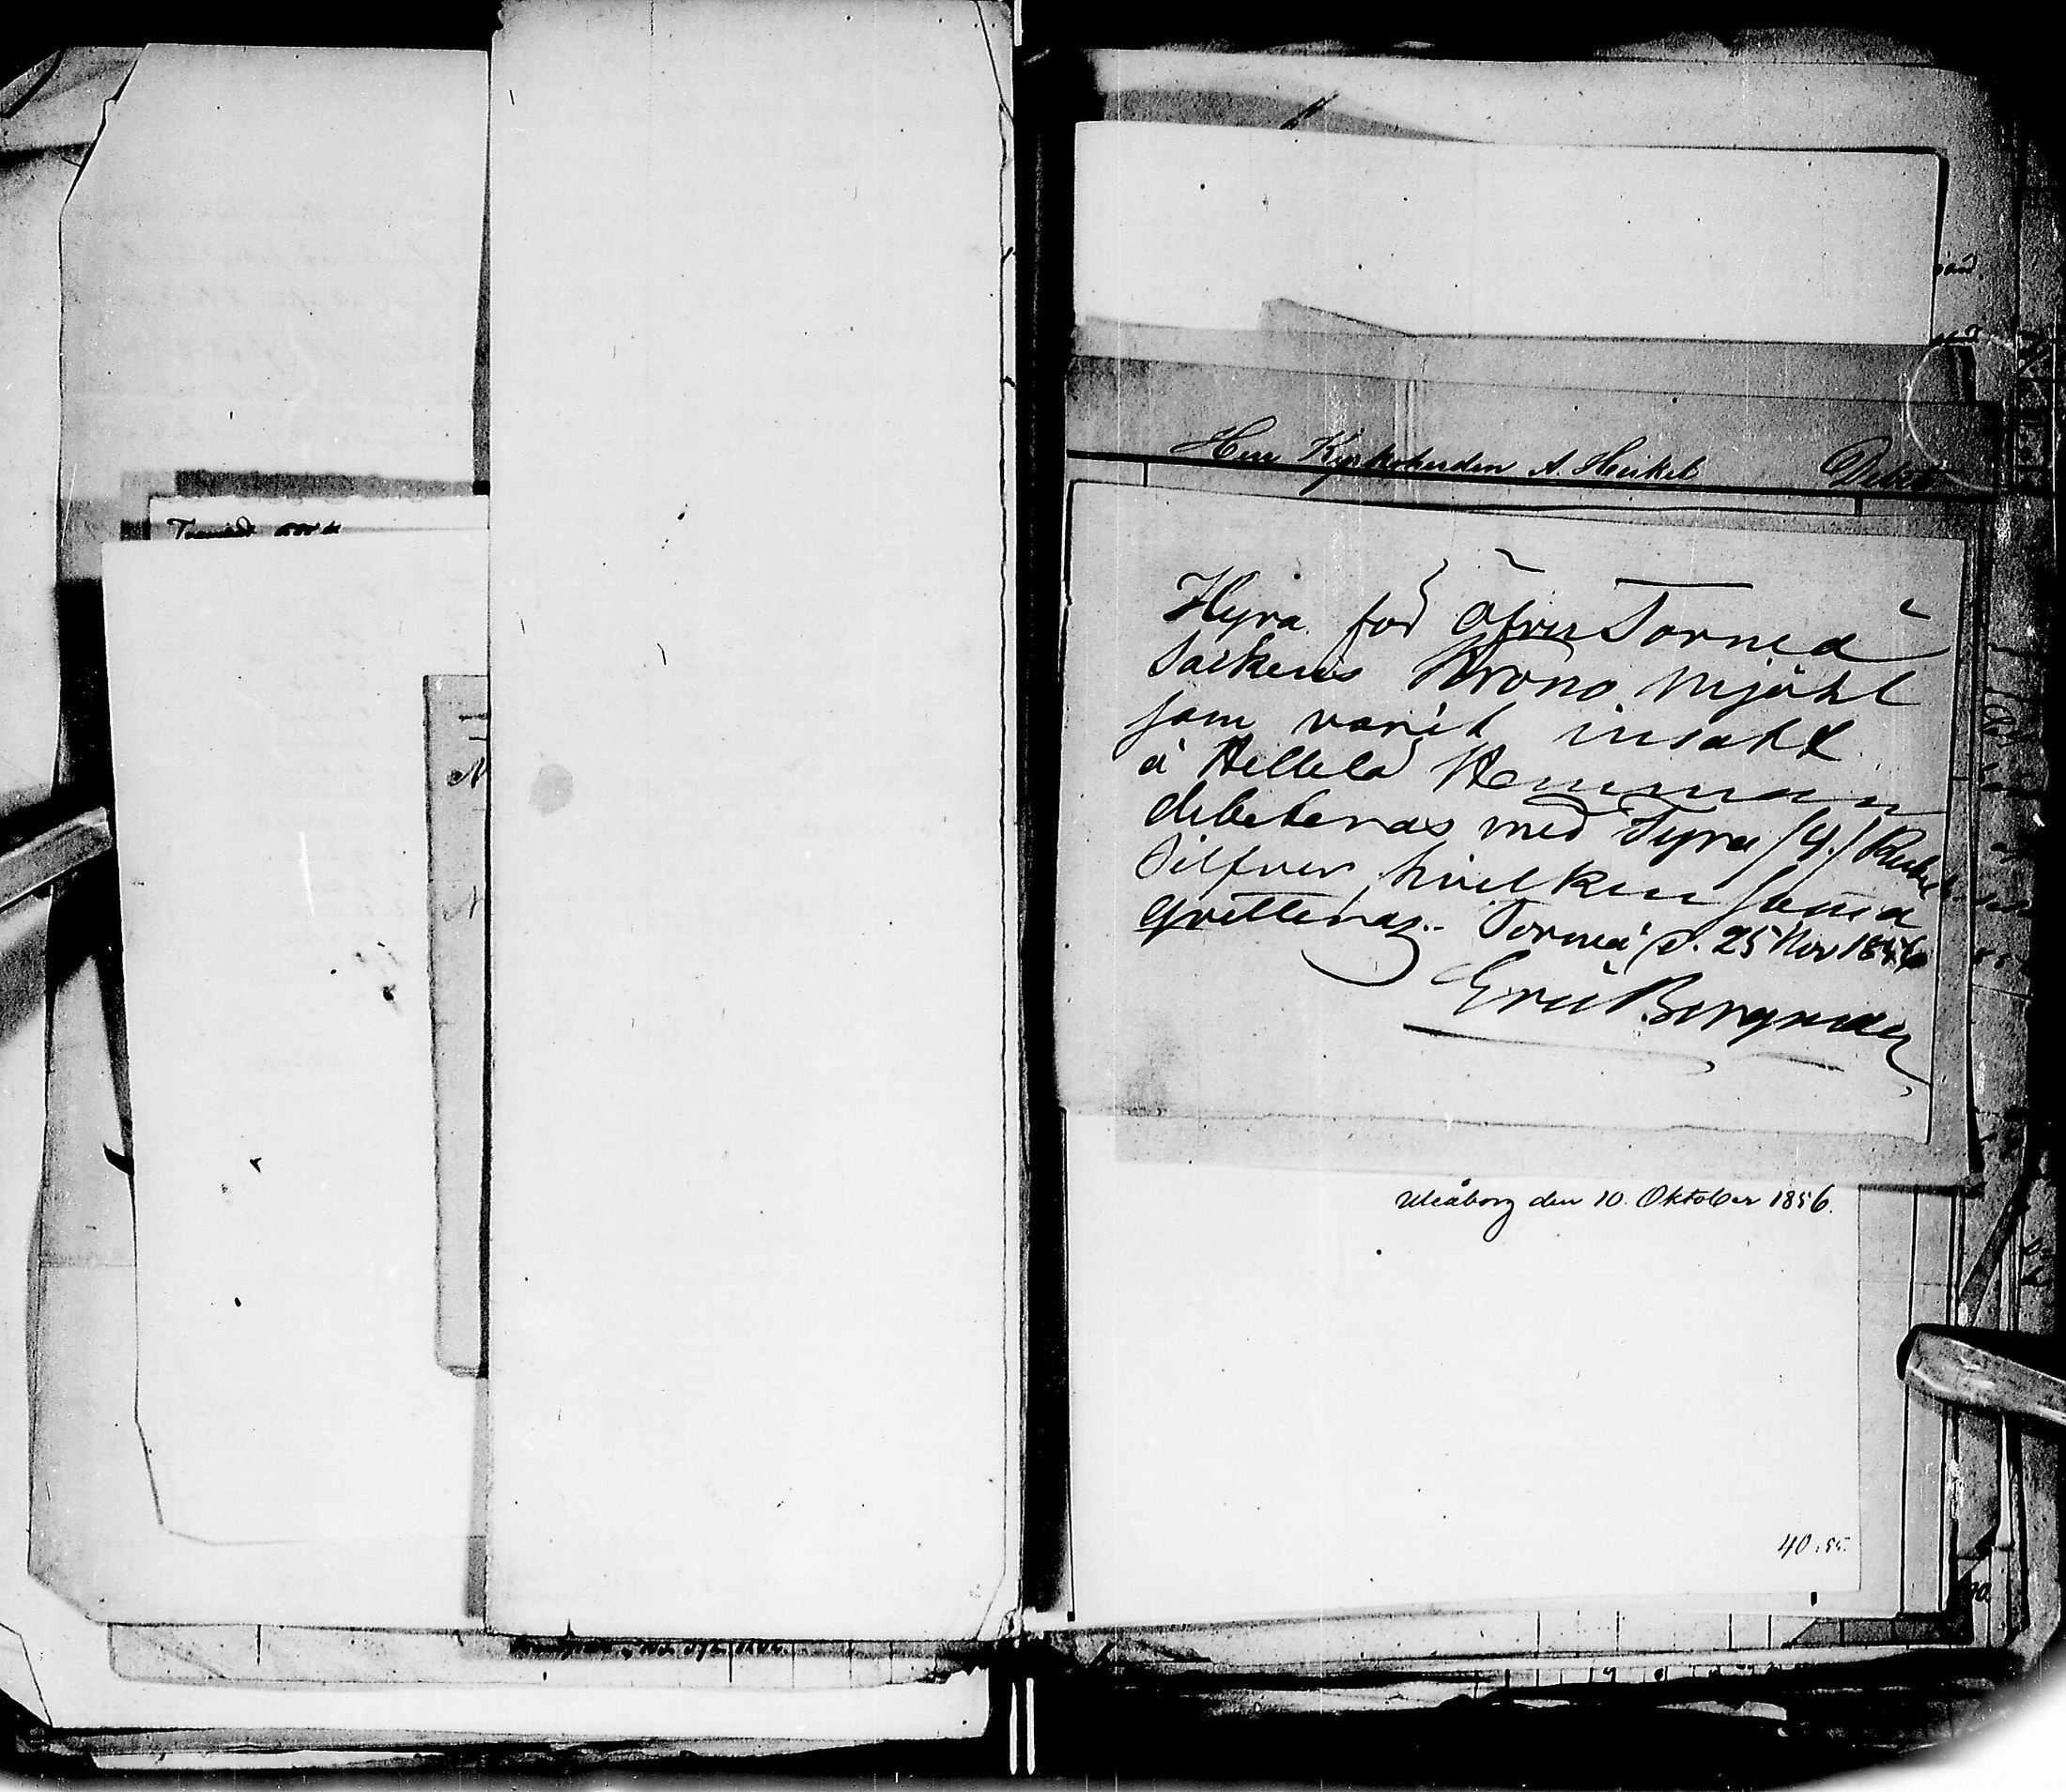 Herr Kyrkoherden A. Heikel Debet
Hyra för Öfver Torneå
Sockens Krono Mjöhl
som varit insatt
å Hellelä Hemman
debeteras med Fyra /4./ Rubel
Silfver hvilken Suma
qvitteras. Torneå d. 25 Nov 1856
Eric Bergman
Uleåborg den 10. Oktober 1856.
40.55.